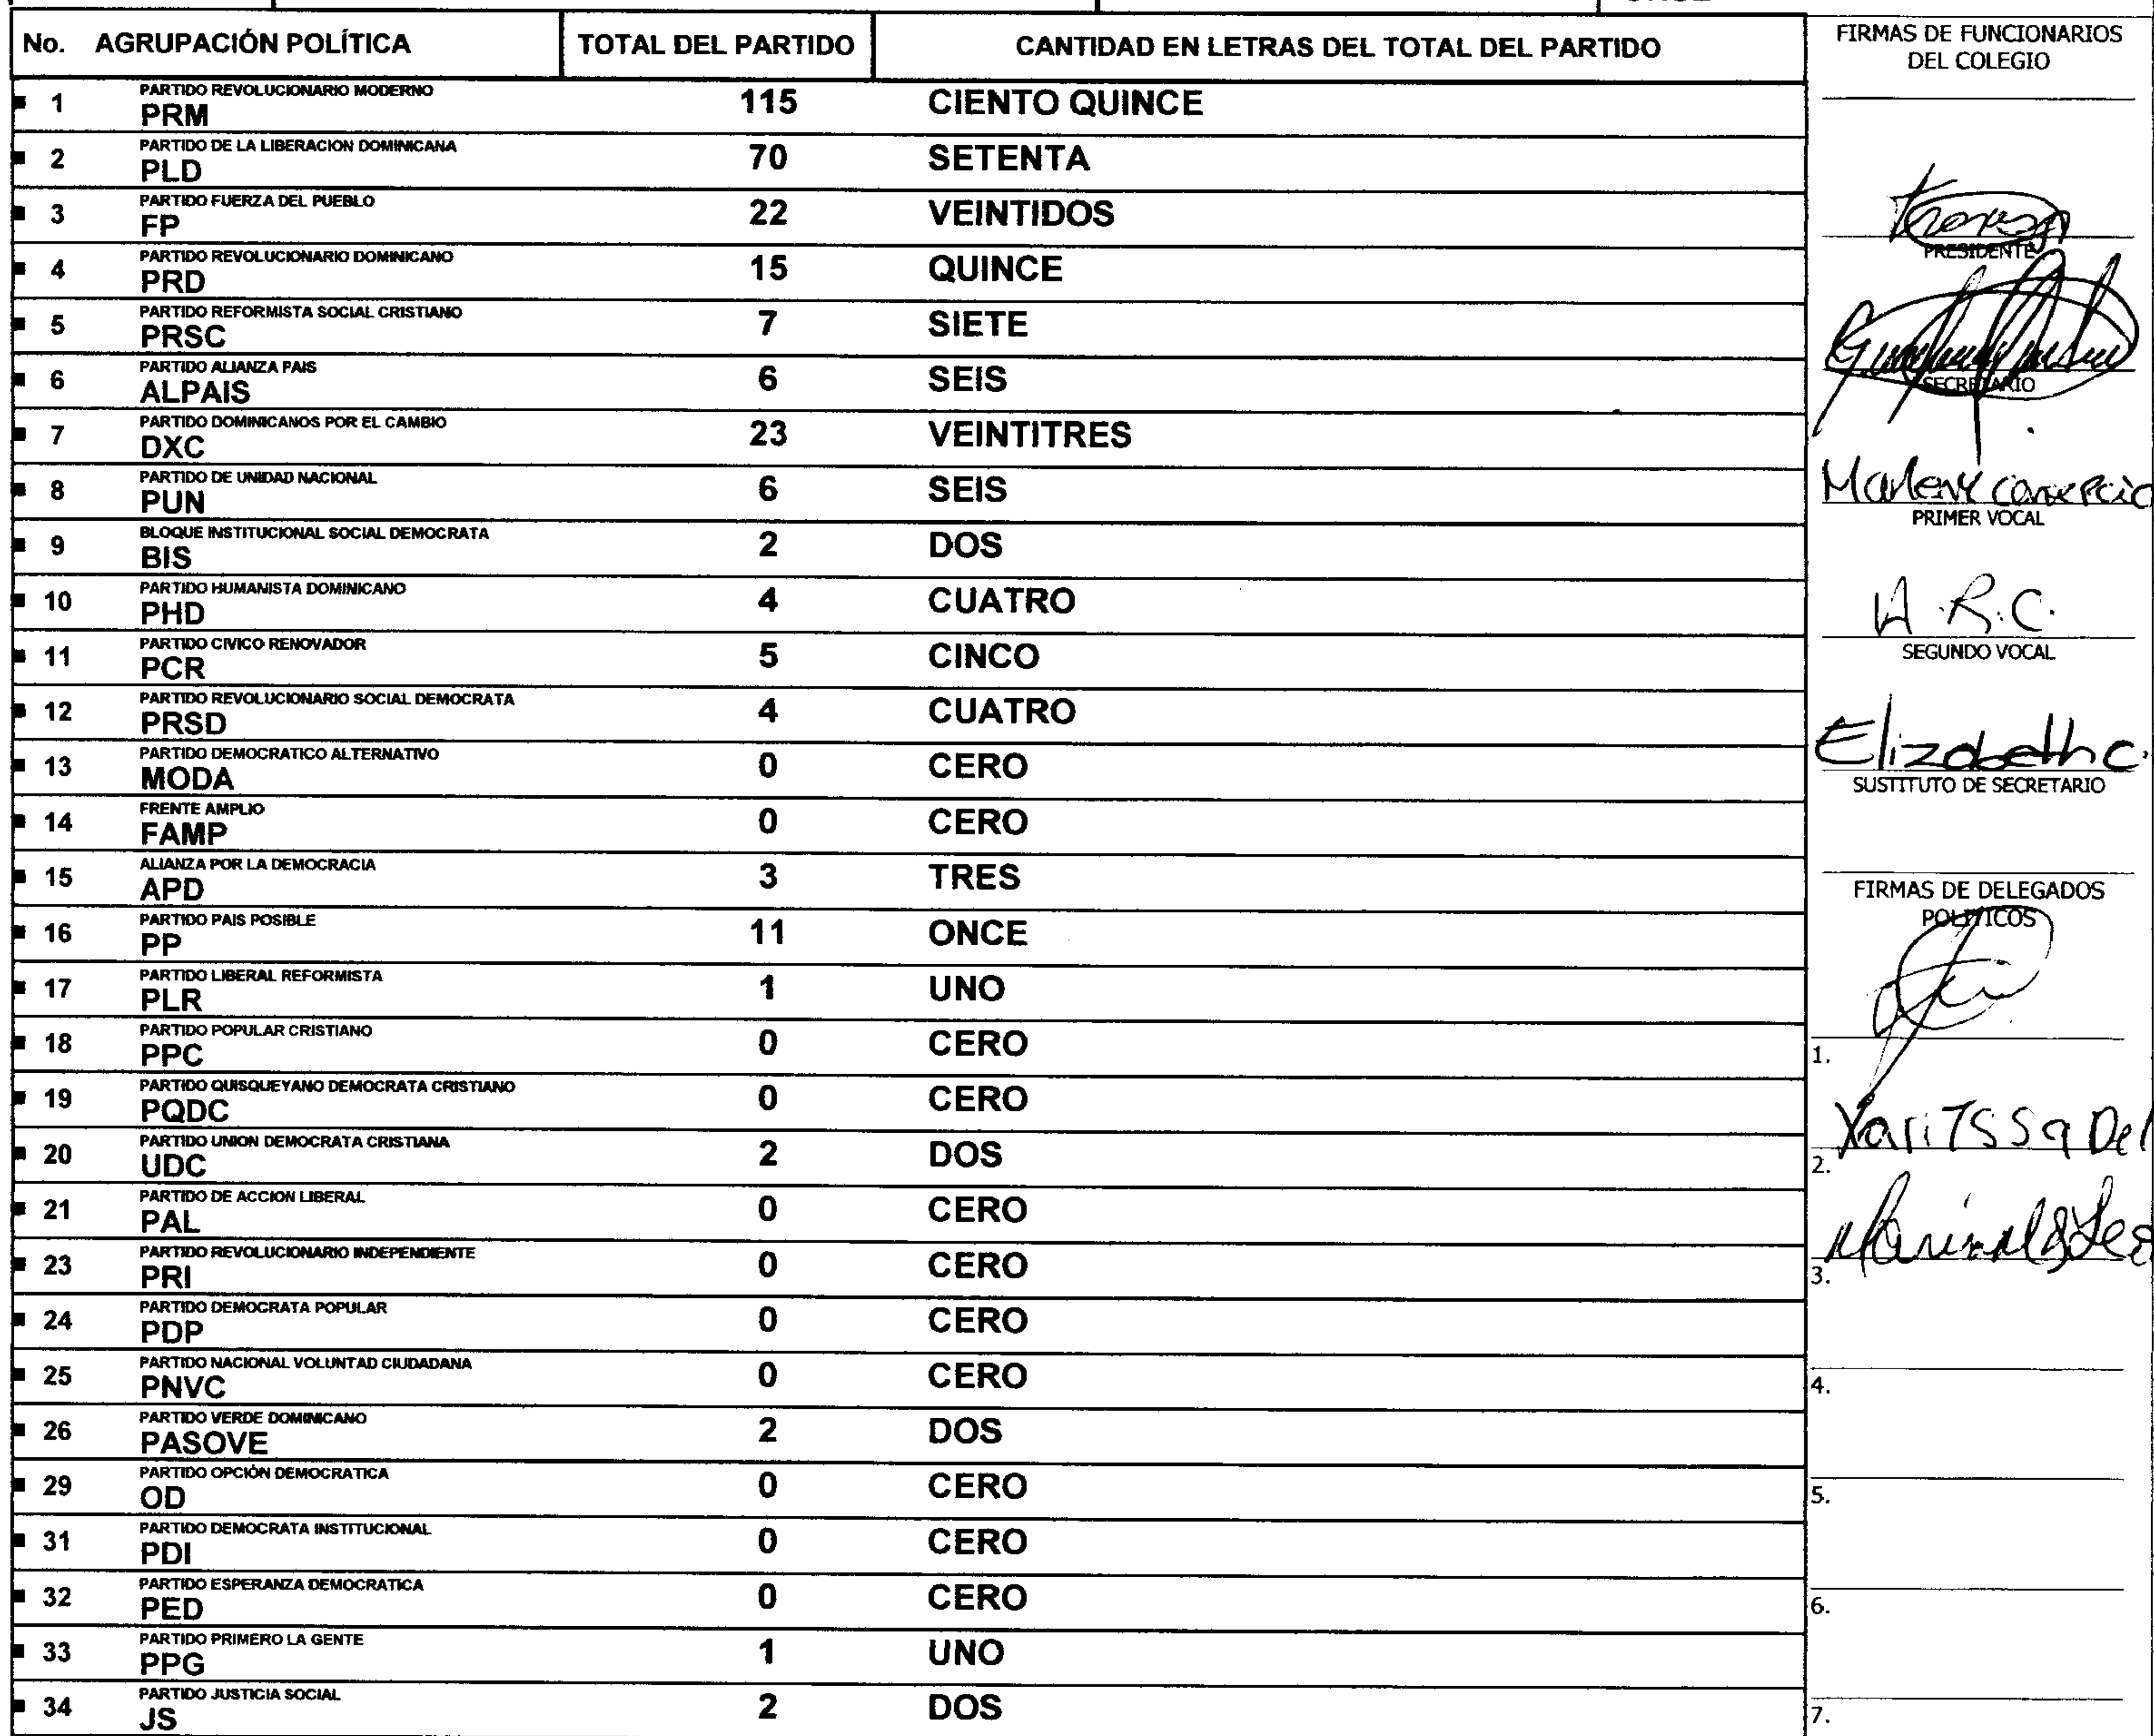 No. AGRUPACIÓN POLÍTICA TOTAL DEL PARTIDO CANTIDAD EN LETRAS DEL TOTAL DEL PARTIDO
1 PARTIDO REVOLUCIONARIO MODERNO
PRM 115 CIENTO QUINCE
2 PARTIDO DE LA LIBERACION DOMINICANA
PLD 70 SETENTA
3 PARTIDO FUERZA DEL PUEBLO
FP 22 VEINTIDOS
4 PARTIDO REVOLUCIONARIO DOMINICANO
PRD 15 QUINCE
5 PARTIDO REFORMISTA SOCIAL CRISTIANO
PRSC 7 SIETE
6 PARTIDO ALIANZA PAIS
ALPAIS 6 SEIS
7 PARTIDO DOMINICANOS POR EL CAMBIO
DXC 23 VEINTITRES
8 PARTIDO DE UNIDAD NACIONAL
PUN 6 SEIS
9 BLOQUE INSTITUCIONAL SOCIAL DEMOCRATA
BIS 2 DOS
10 PARTIDO HUMANISTA DOMINICANO
PHD 4 CUATRO
11 PARTIDO CIVICO RENOVADOR
PCR 5 CINCO
12 PARTIDO REVOLUCIONARIO SOCIAL DEMOCRATA
PRSD 4 CUATRO
13 PARTIDO DEMOCRATICO ALTERNATIVO
MODA 0 CERO
14 FRENTE AMPLIO
FAMP 0 CERO
15 ALIANZA POR LA DEMOCRACIA
APD 3 TRES
16 PARTIDO PAIS POSIBLE
PP 11 ONCE
17 PARTIDO LIBERAL REFORMISTA
PLR 1 UNO
18 PARTIDO POPULAR CRISTIANO
PPC 0 CERO
19 PARTIDO QUISQUEYANO DEMOCRATA CRISTIANO
PQDC 0 CERO
20 PARTIDO UNION DEMOCRATA CRISTIANA
UDC 2 DOS
21 PARTIDO DE ACCION LIBERAL
PAL 0 CERO
23 PARTIDO REVOLUCIONARIO INDEPENDIENTE
PRI 0 CERO
24 PARTIDO DEMOCRATA POPULAR
PDP 0 CERO
25 PARTIDO NACIONAL VOLUNTAD CIUDADANA
PNVC 0 CERO
26 PARTIDO VERDE DOMINICANO
PASOVE 2 DOS
29 PARTIDO OPCIÓN DEMOCRATICA
OD 0 CERO
31 PARTIDO DEMOCRATA INSTITUCIONAL
PDI 0 CERO
32 PARTIDO ESPERANZA DEMOCRATICA
PED 0 CERO
33 PARTIDO PRIMERO LA GENTE
PPG 1 UNO
34 PARTIDO JUSTICIA SOCIAL
JS 2 DOS
FIRMAS DE FUNCIONARIOS
DEL COLEGIO
PRESIDENTE
SECRETARIO
PRIMER VOCAL
A.R.C.
SEGUNDO VOCAL
Elizabeth C.
SUSTITUTO DE SECRETARIO
FIRMAS DE DELEGADOS
POLITICOS
1.
2. Yarissa Del
3.
4.
5.
6.
7.